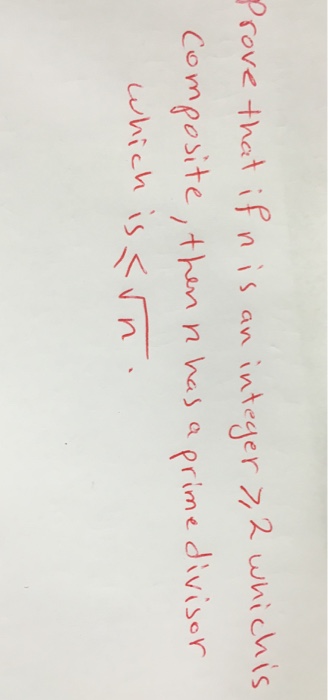 Prove that if n is an integer ⩾ 2 which is
composite, then n has a prime divisor
which is ⩽ √n.